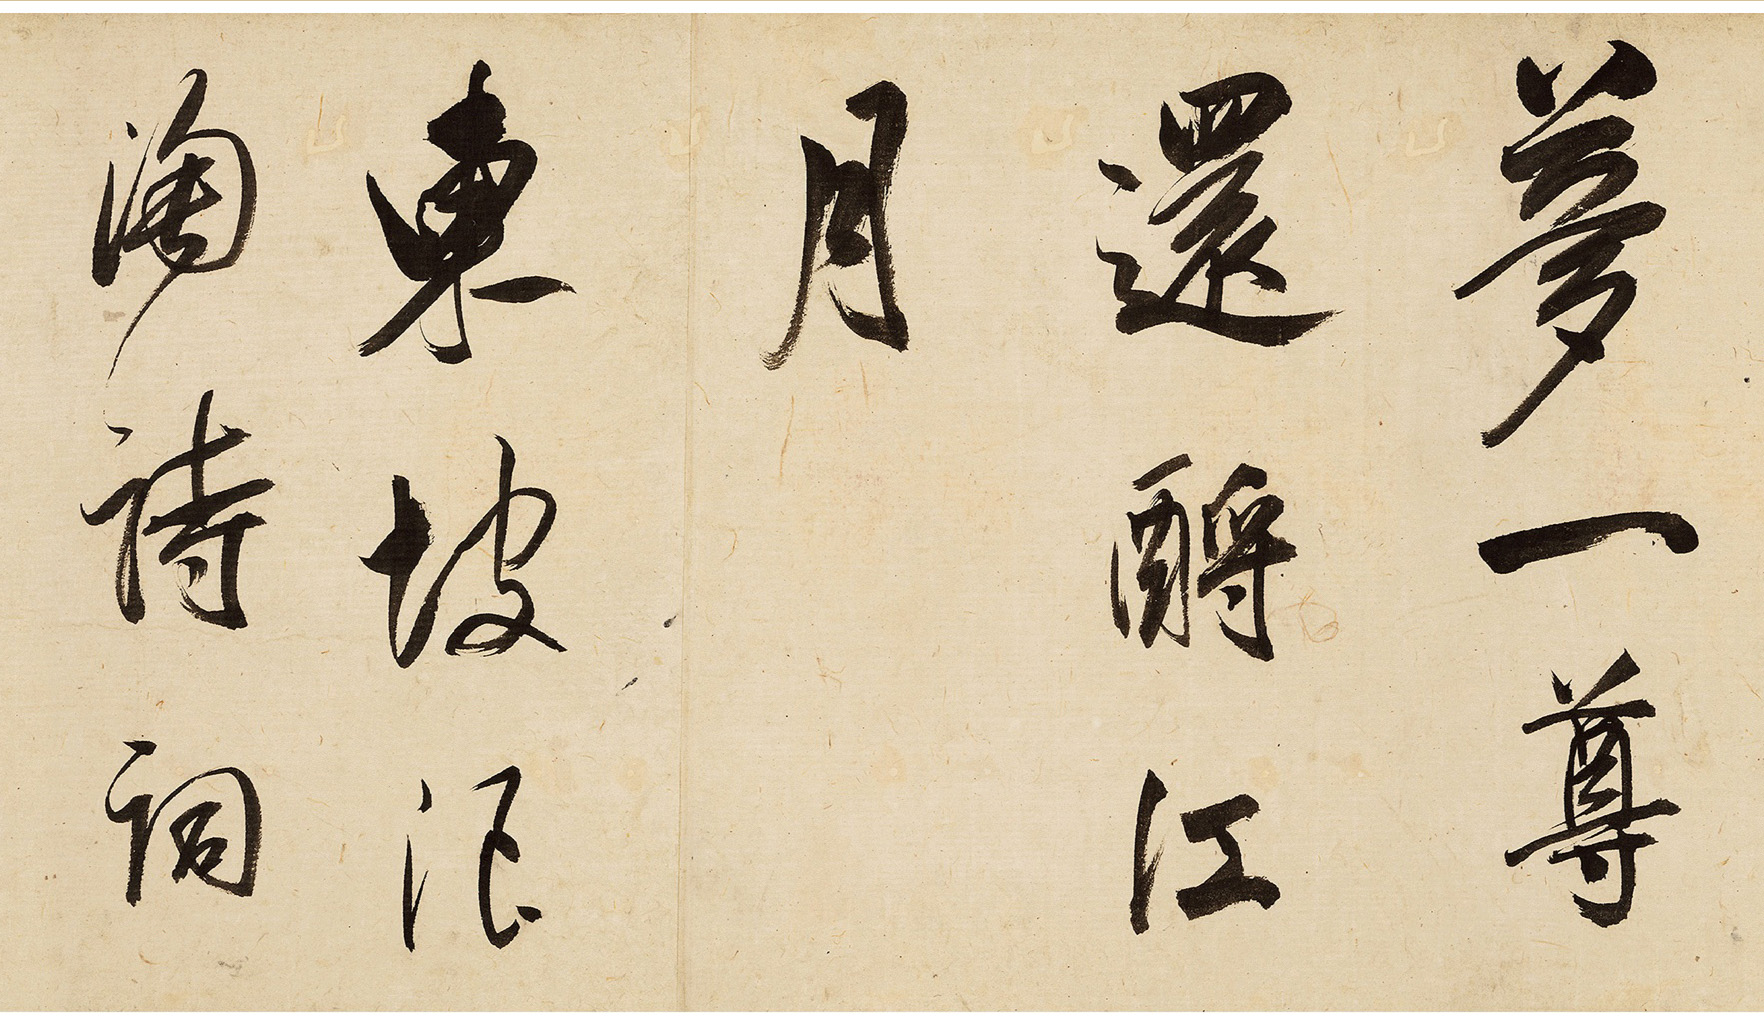 夢一尊
還酹江
月
東坡浪
淘詩詞